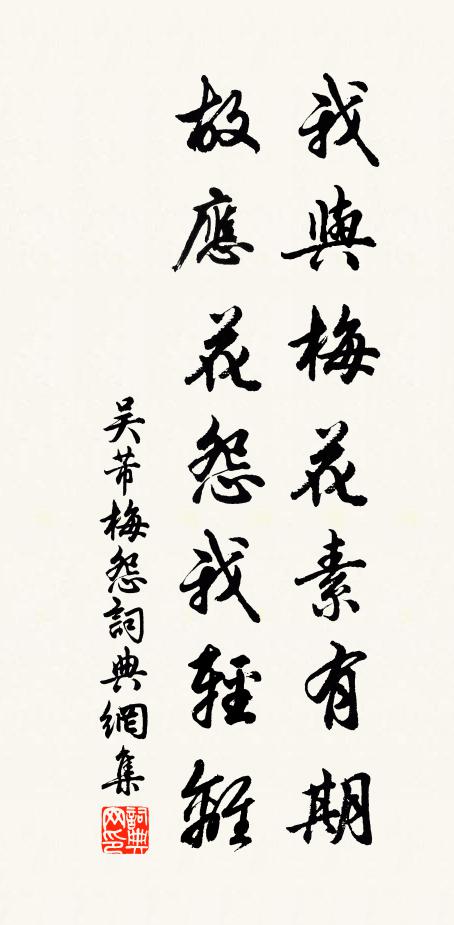 我與梅花素有期
故應花怨我輕離
吳芾梅怨詞典網集
詞典网印